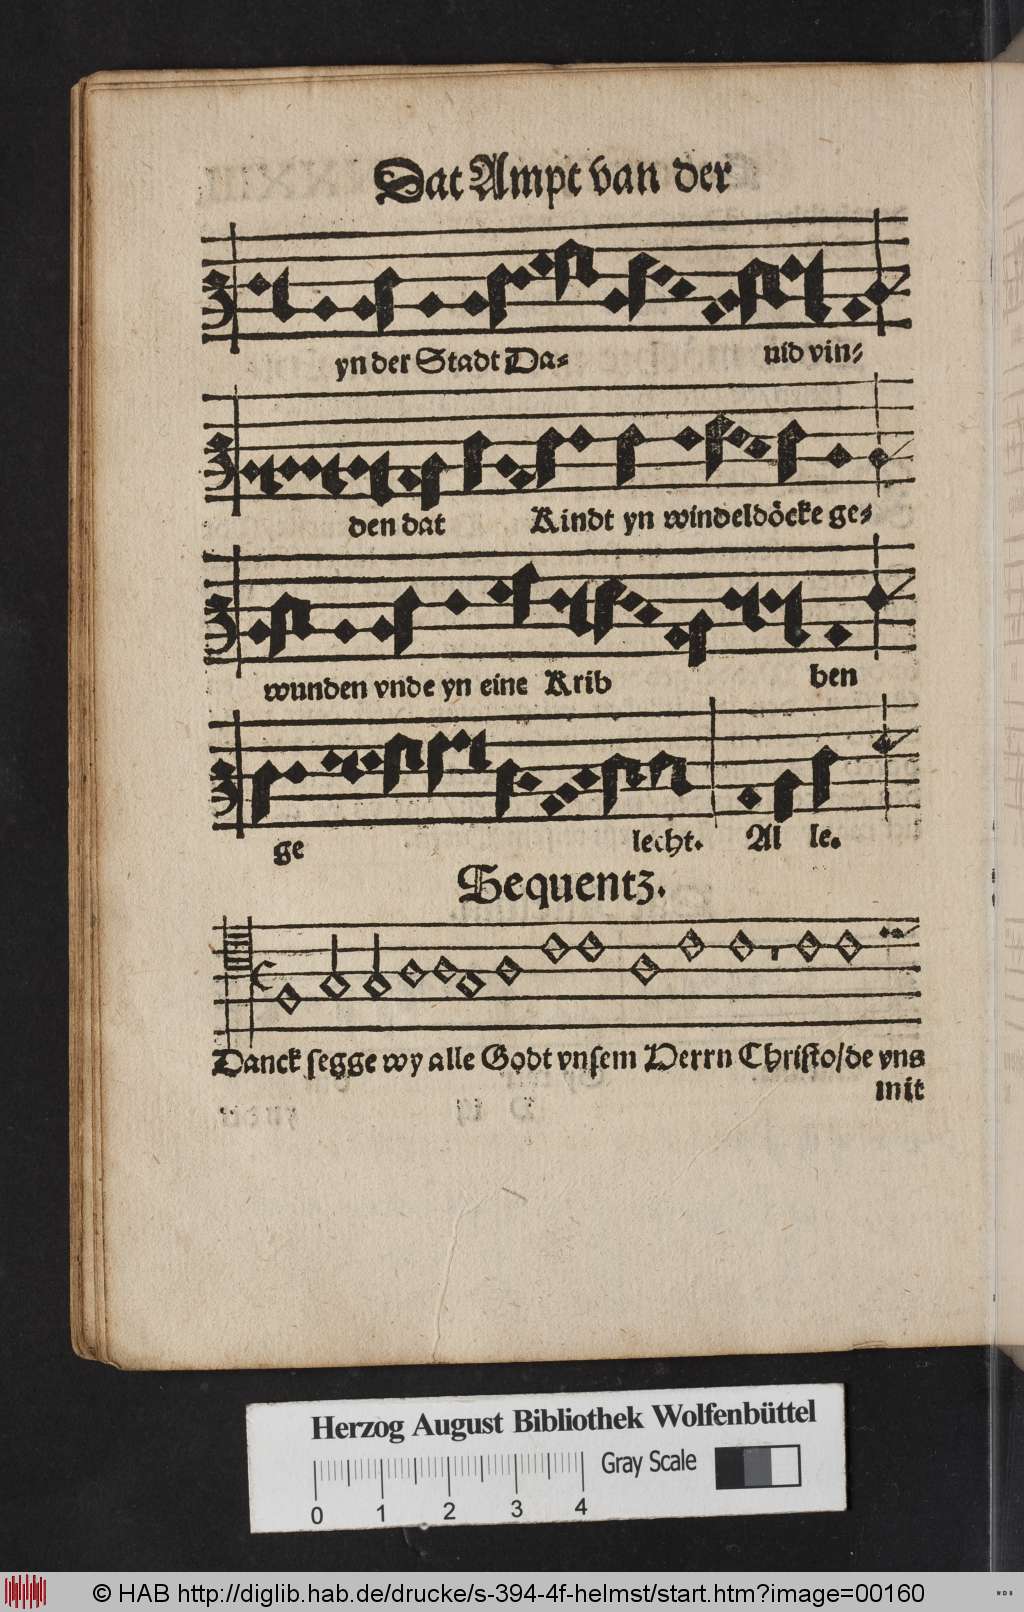 Dat Ampt van der
yn der Stadt Da-
uid vin-
den dat Kindt yn windeldöcke ge-
wunden vnde yn eine Krib ben
ge lecht. Al le.
Sequentz.
Danck segge wy alle Godt vnsem Herrn Christo/de vns
mit
Herzog August Bibliothek Wolfenbüttel
Gray Scale
0 1 2 3 4
© HAB http://diglib.hab.de/drucke/s-394-4f-helmst/start.htm?image=00160